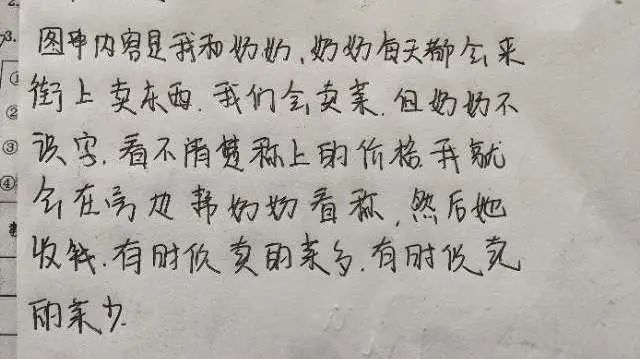 图中内容是我和奶奶,奶奶每天都会来
街上卖东西.我们会卖菜.但奶奶不
识字.看不清楚称上的价格.我就
会在旁边帮奶奶看称,然后她
收钱.有时候卖的菜多.有时候卖
的菜少.
3.
①
②
③
④